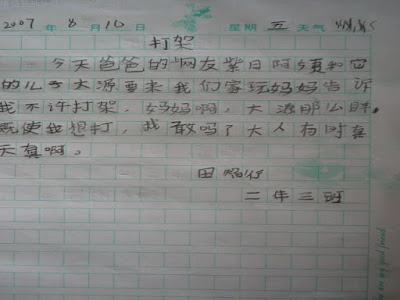 2007 年 8 月 10 日 星期 五 天气
打架
今天爸爸的"网友紫日阿须和它
的儿子大源要来我们家玩妈妈告诉
我不许打架，妈妈啊，大源那么胖，
既使我想打，我敢吗了大人有时真
天真啊。
田
二年三班
are my good friend